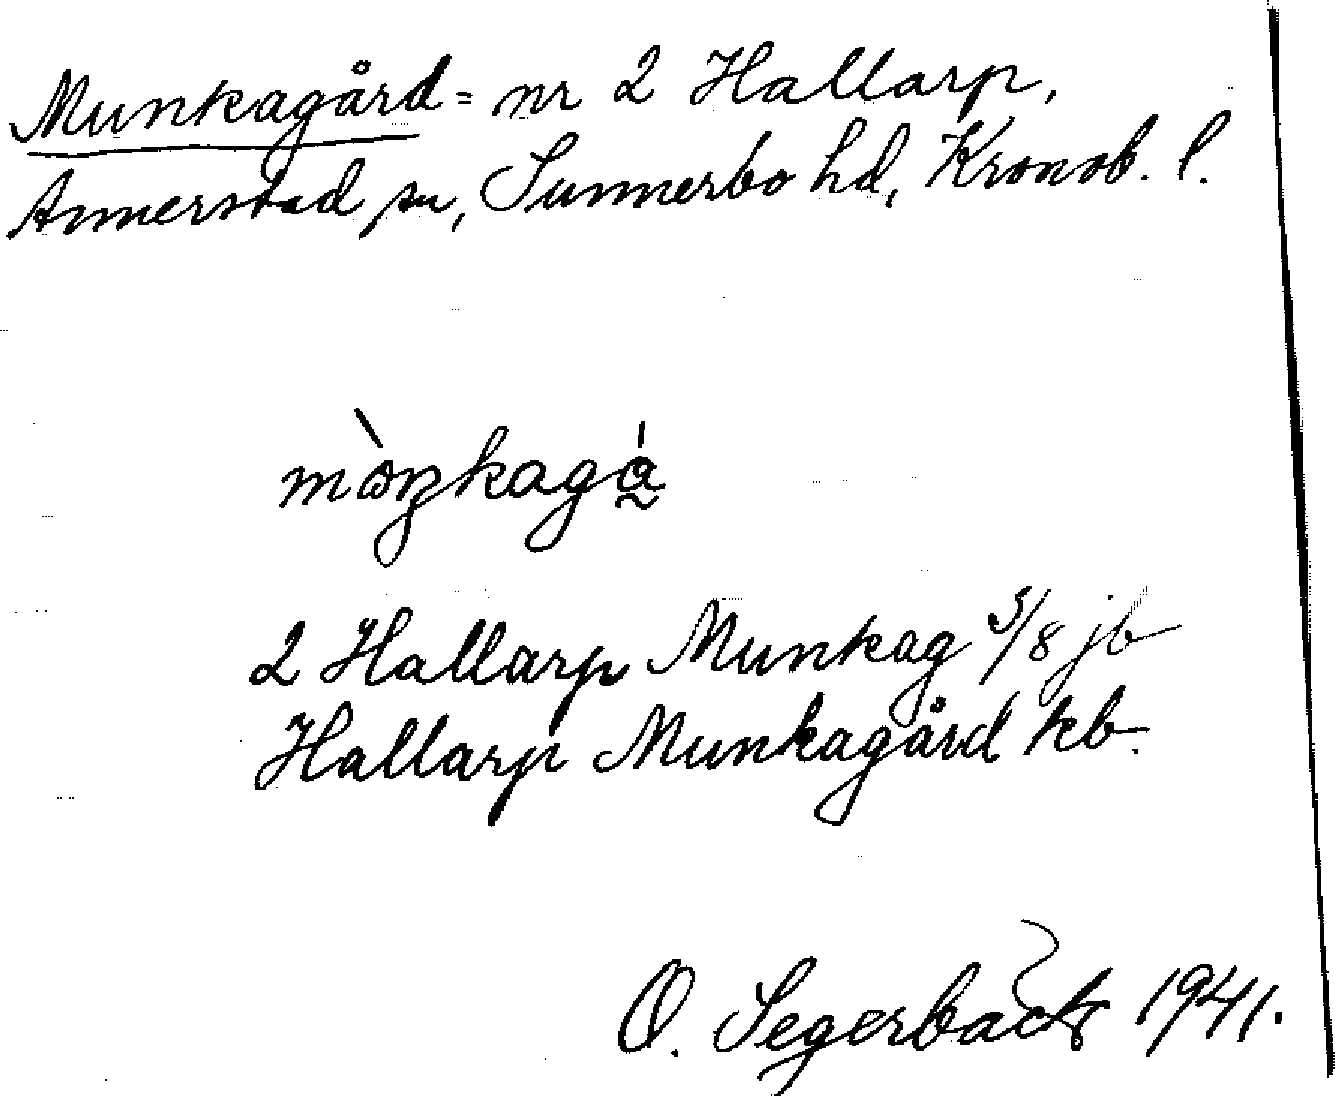 Munkagård = nr 2 Hallarp,
Annerstad sn, Sunnerbo hd, Kronob. l.
2 Hallarp Munkag 5/8 jb
Hallarp Munkagård kb.
O. Segerbäck 1941.